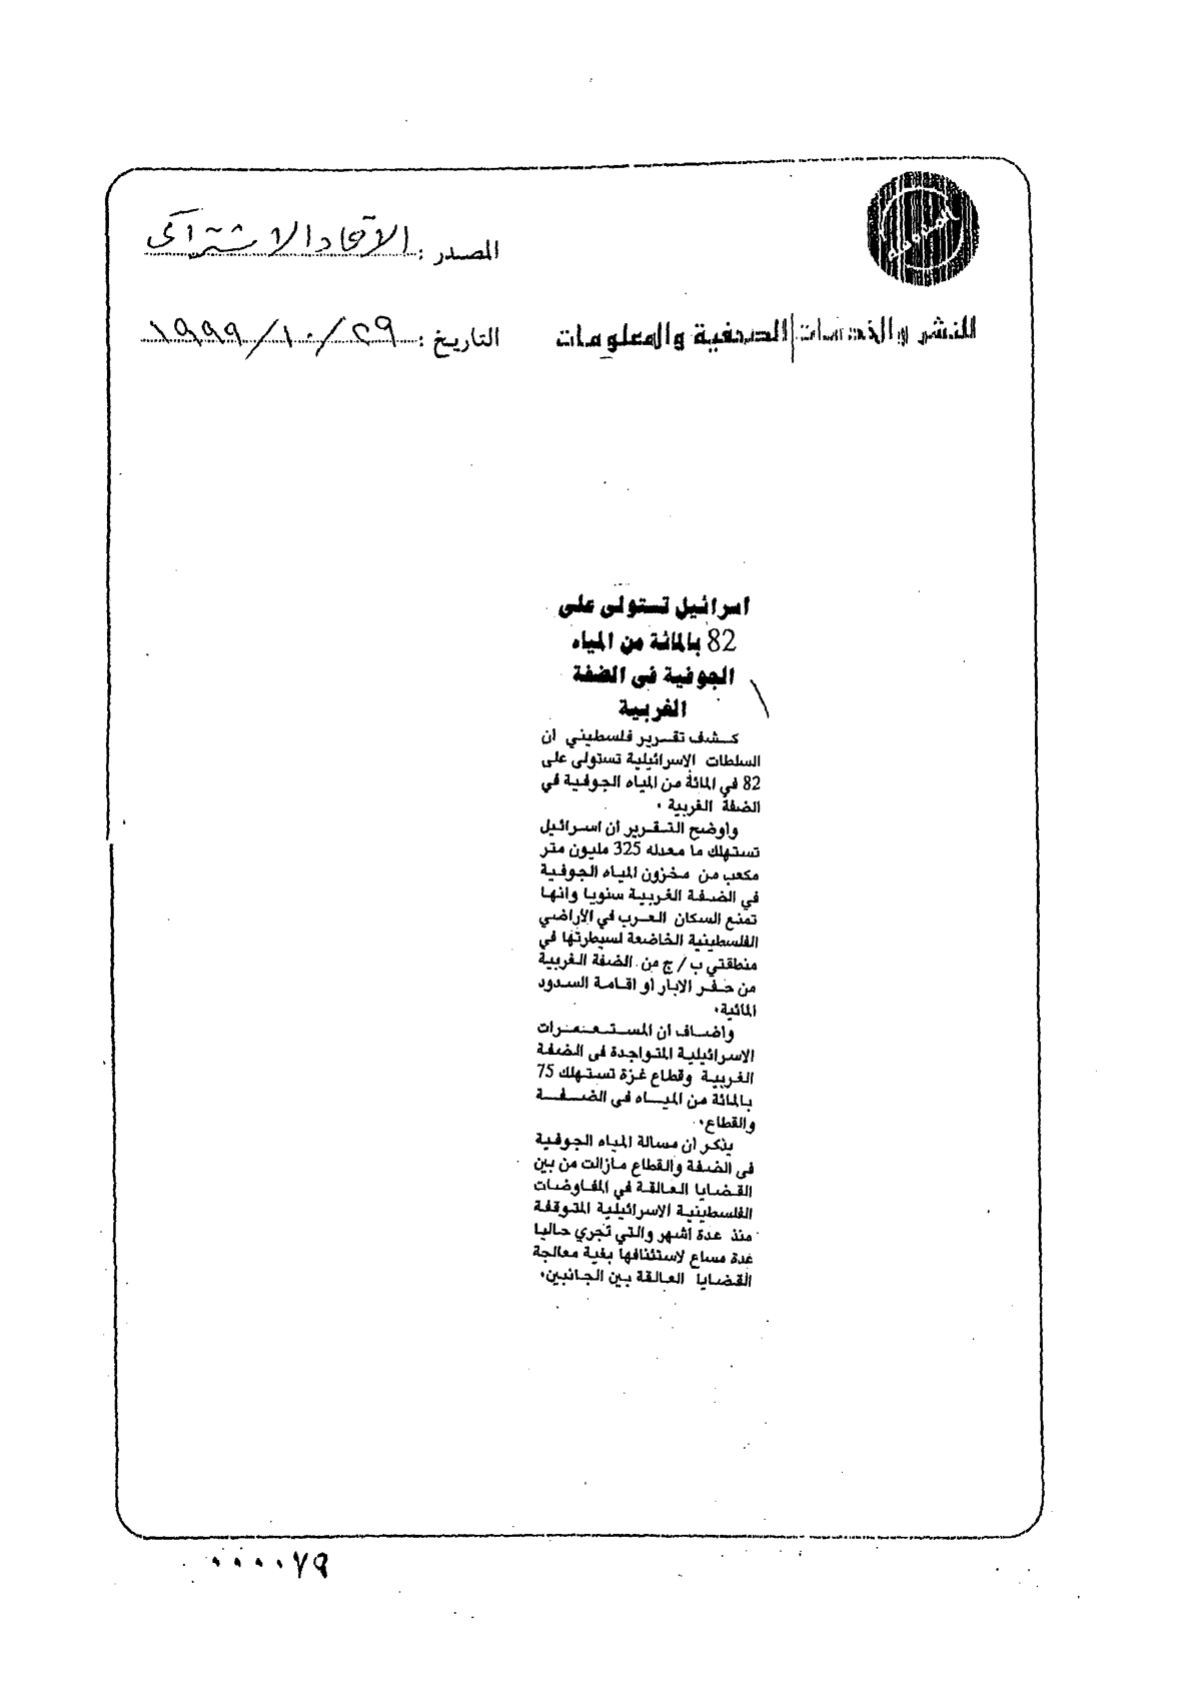 المصدر : الاتحاد الاشتراكى
للنشر والخدمات الصحفية والمعلومات
التاريخ : ٢٩ / ١٠ / ١٩٩٩
اسرائيل تستولى على
82 بالمائة من المياه
الجوفية فى الضفة
الغربية
كشف تقرير فلسطيني ان
السلطات الإسرائيلية تستولى على
82 في المائة من المياه الجوفية في
الضفة الغربية .
وأوضح التقرير أن اسرائيل
تستهلك ما معدله 325 مليون متر
مكعب من مخزون المياه الجوفية
في الضفة الغربية سنويا وانها
تمنع السكان العرب في الأراضي
الفلسطينية الخاضعة لسيطرتها في
منطقتي ب / ج من الضفة الغربية
من حفر الابار أو اقامة السدود
المائية.
واضاف ان المستعمرات
الاسرائيلية المتواجدة فى الضفة
الغربية وقطاع غزة تستهلك 75
بالمائة من المياه فى الضفة
والقطاع.
يذكر أن مسالة المياه الجوفية
فى الضفة والقطاع مازالت من بين
القضايا العالقة في المفاوضات
الفلسطينية الاسرائيلية المتوقفة
منذ عدة أشهر والتي تجري حاليا
عدة مساع لاستئنافها بغية معالجة
القضايا العالقة بين الجانبين.
٠٠٠٠٧٩